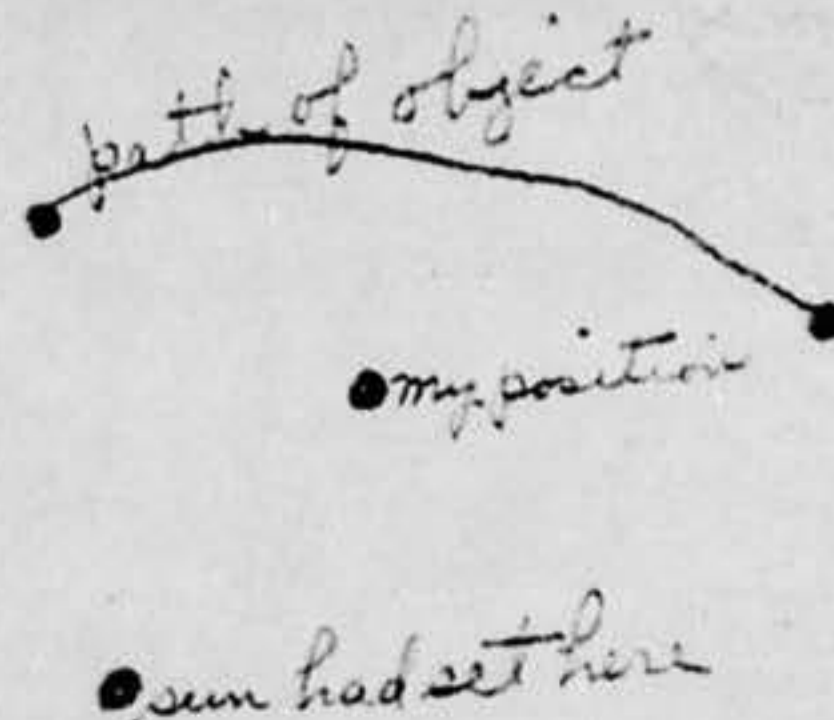 path of object
my position
sun had set here